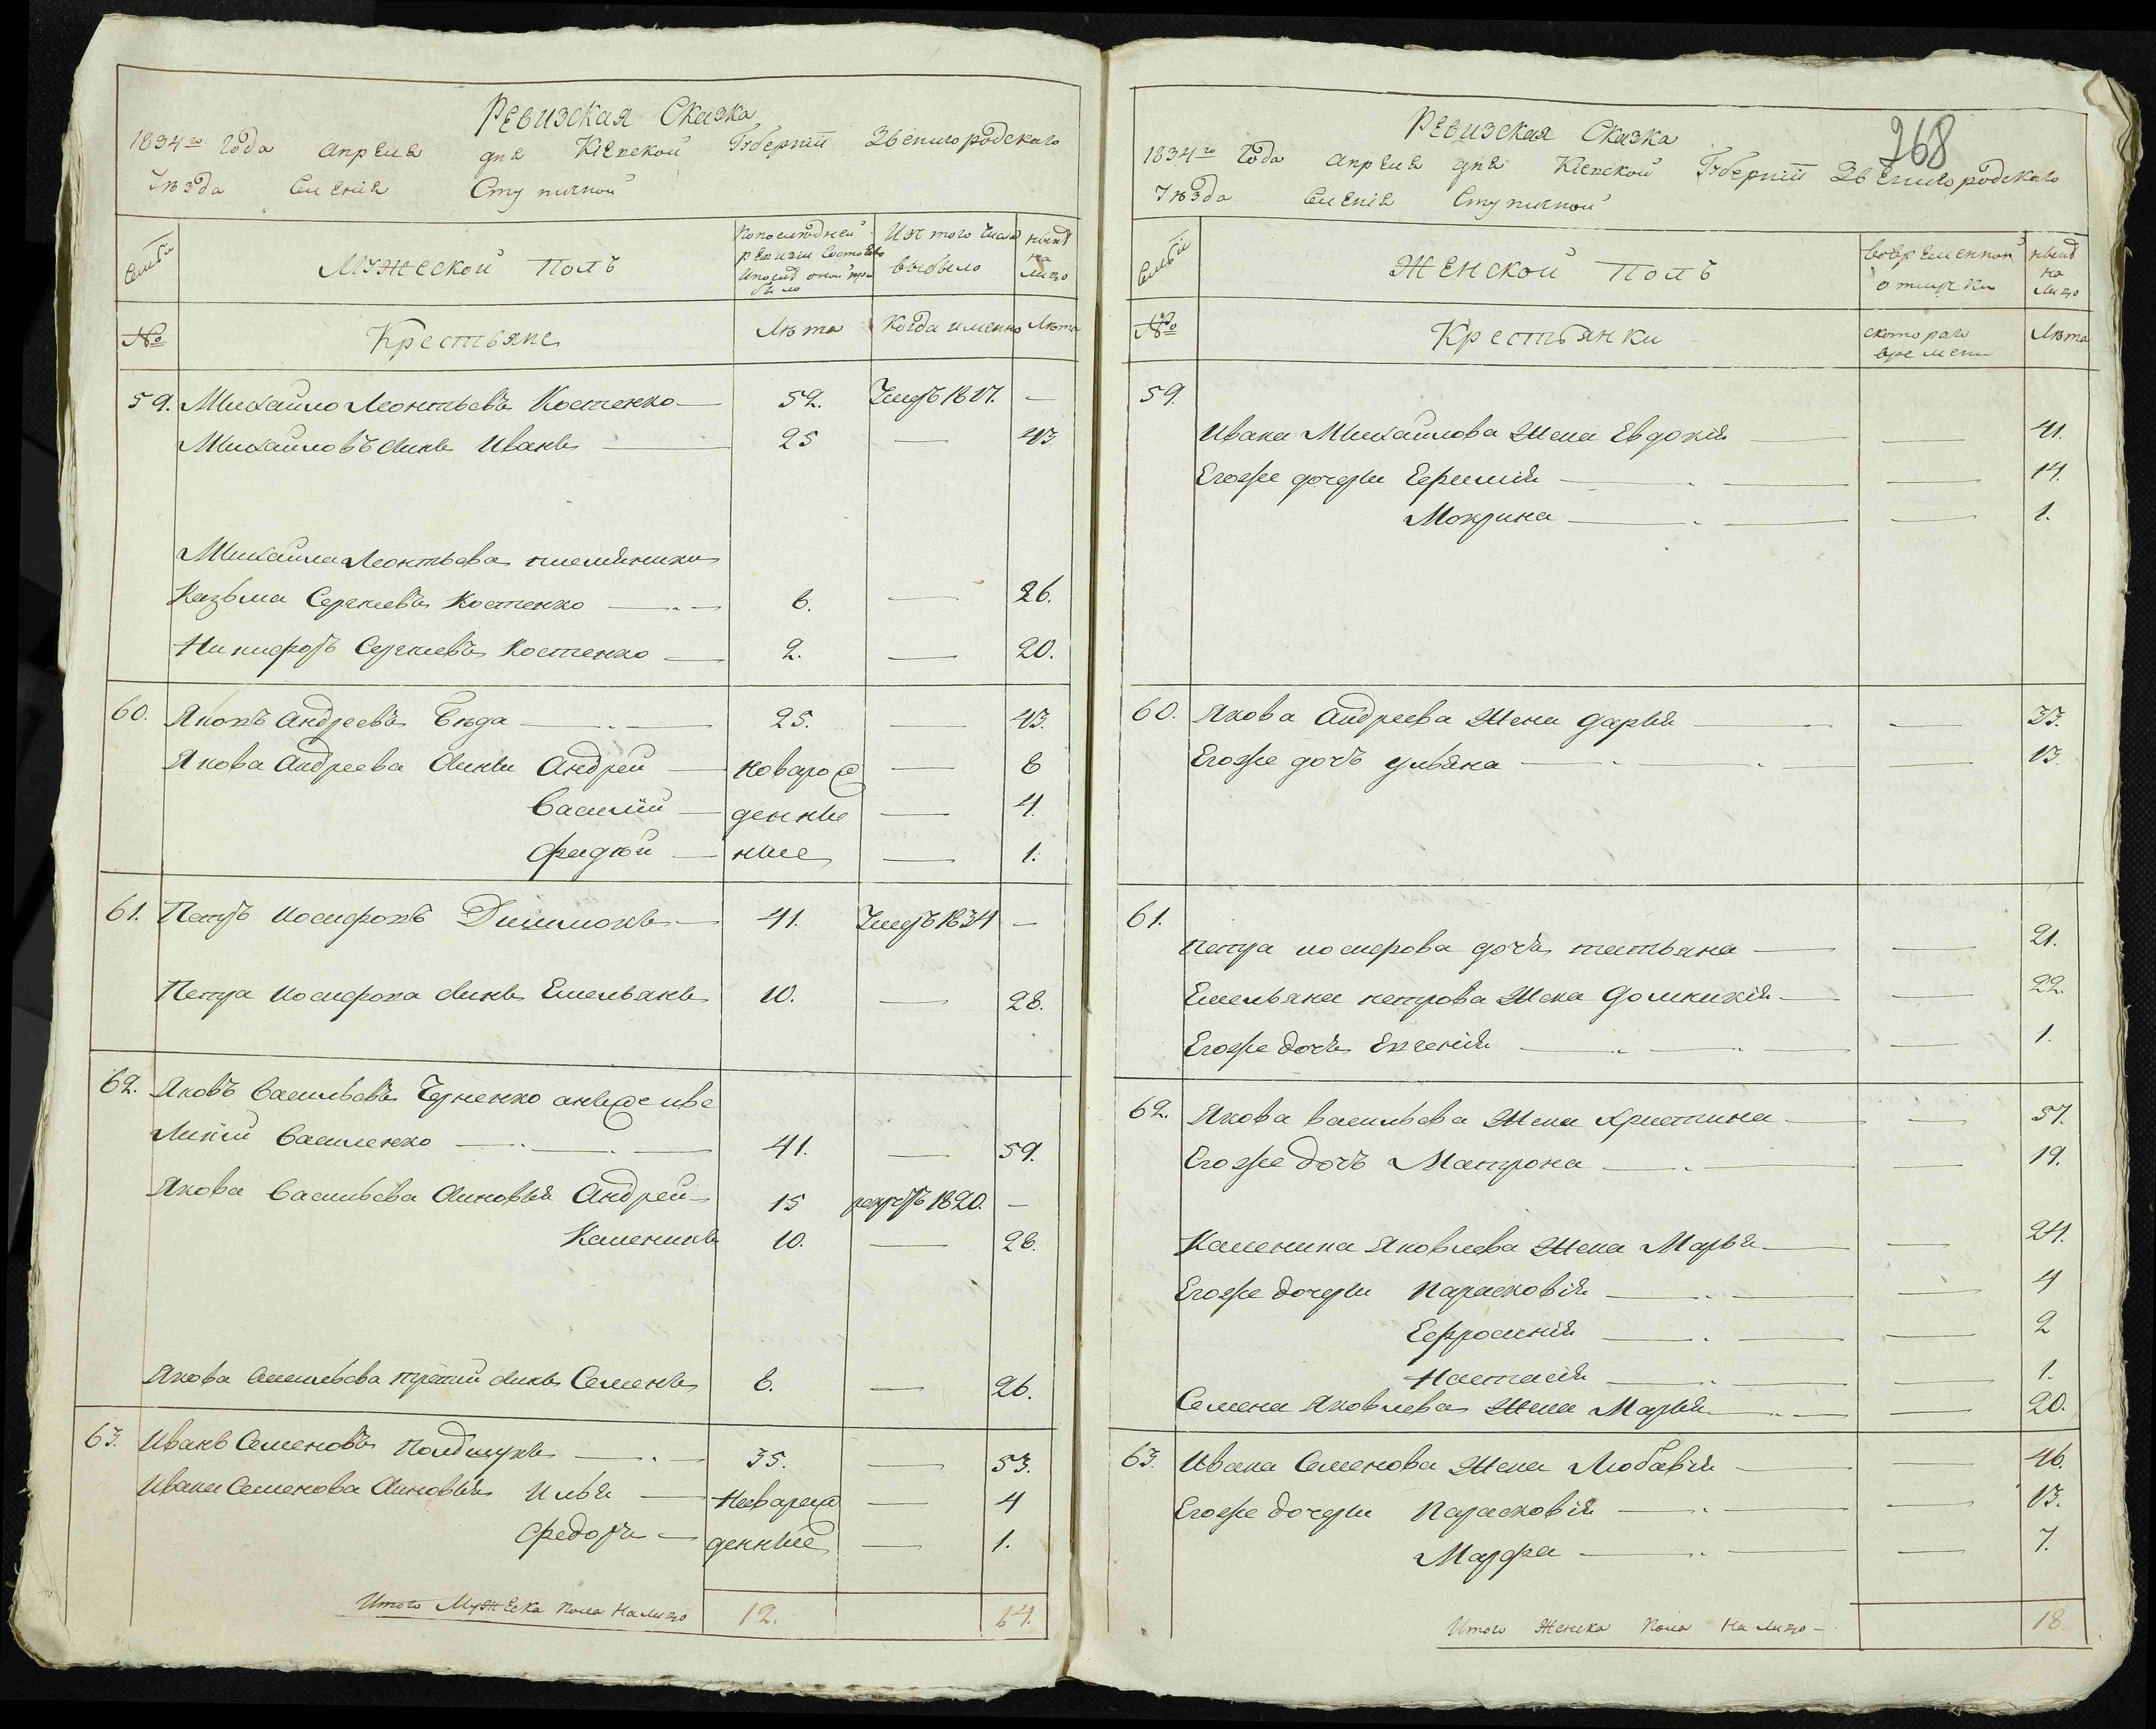 Ревизская Сказка
1834го Года Апреля дня Кіевской Губерніи Звенигородскаго
Уѣзда Селенія Ступичной
Семьи
Мужеской Полъ
По последней ревизіи Состояло
и послѣ оной прибыло
Изъ того Числа
выбыло
нынѣ
на
лицо
№
Крестьяне
Лѣта
Когда именно
Лѣта
59. Михайло Леонтьевъ Костенко — 52. Умеръ 1817. —
Михайловъ Сынъ Иванъ — 25 — 43.
Михайла Леонтьева племянники
Казьма Сергіевъ Костенко — 8. — 26.
Никифоръ Сергіевъ Костенко — 2. — 20.
60. Яковъ Андреевъ Бѣда — 25. — 43.
Якова Андреева Сыны Андрей — новарож — 8
Василій — денные — 4.
Фадѣй — ные — 1.
61. Петръ Иосифовъ — 41. Умеръ 1834 —
Петра Иосифова Сынъ Емельянъ 10. — 28.
62. Яковъ Васильевъ Черненко
Василенко — 41. — 59.
Якова Васильева Сыновья Андрей — 15 рекрутъ 1820. —
Каленикъ 10. — 28.
Якова Васильева третий Сынъ Семенъ 8. — 26.
63. Иванъ Семеновъ — 35. — 53.
Ивана Семенова Сыновья Илья — Новарож — 4
Федоръ — денные — 1.
Итого Мужеска пола на лицо 12. 14.
268
Ревизская Сказка
1834го Года Апреля дня Кіевской Губерніи Звенигородскаго
Уѣзда Селенія Ступичной
Семьи
Женской Полъ
Во временной
отлучки
нынѣ
на
лицо
№
Крестьянки
с котораго
времени
Лѣта
59.
Ивана Михайлова Жена Евдокія — 41.
Егоже дочери Ефимія — 14.
Мокрина — 1.
60. Якова Андреева Жена Дарья — 33.
Егоже дочь Ульяна — 13.
61.
Петра Иосифова дочь Татьяна — 21.
Емельяна Петрова Жена Домникія — 22.
Егоже дочь Евгенія — 1.
62. Якова Васильева Жена Христина — 57.
Егоже дочь Матрона — 19.
Каленика Яковлева Жена Марья — 24.
Егоже дочери Парасковія — 4
Ефросинія — 2
Настасія — 1.
Семена Яковлева Жена Марья — 20.
63. Ивана Семенова Жена Любавья — 46.
Егоже дочери Парасковія — 13.
Марфа — 7.
Итого Женска Пола На лицо — 18